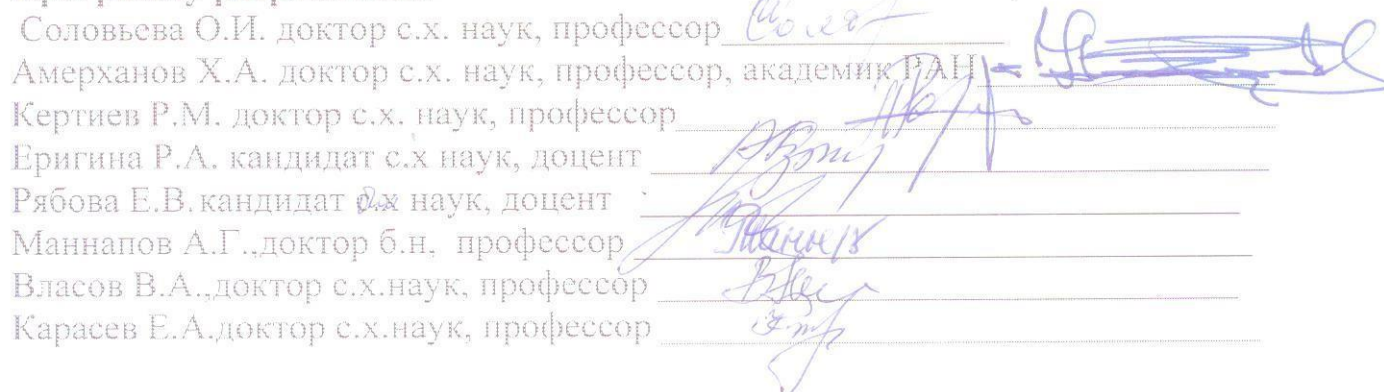 Соловьева О.И. доктор с.х. наук, профессор
Амерханов Х.А. доктор с.х. наук, профессор, академик РАН
Кертиев Р.М. доктор с.х. наук, профессор
Еригина Р.А. кандидат с.х наук, доцент
Рябова Е.В. кандидат наук, доцент
Маннапов А.Г.,доктор б.н, профессор
Власов В.А.,доктор с.х.наук, профессор
Карасев Е.А.доктор с.х.наук, профессор